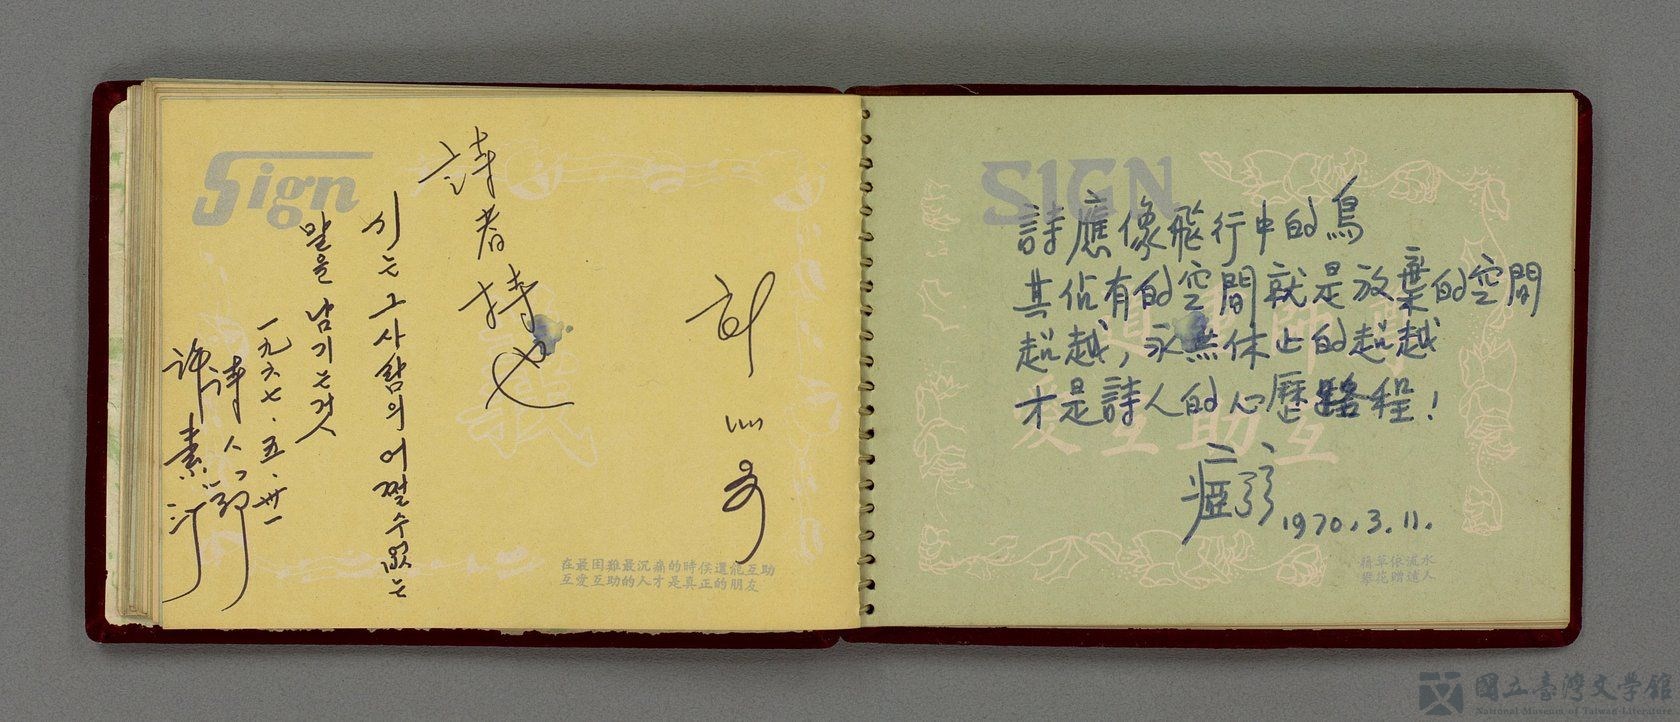 Sign
許世旭
詩者持也
시는 그사람의 어쩔수없는
말을 남기는것
一九六七、五、卅一
詩人
許素汀
義
在最困難最沉痛的時侯還能互助
互愛互助的人才是真正的朋友
SIGN
詩應像飛行中的鳥
其佔有的空間就是放棄的空間
超越，永無休止的超越
才是詩人的心歷路程！
瘂弦
1970.3.11.
道重師尊
愛互助互
藉草依流水
攀花贈遠人
國立臺灣文學館
National Museum of Taiwan Literature